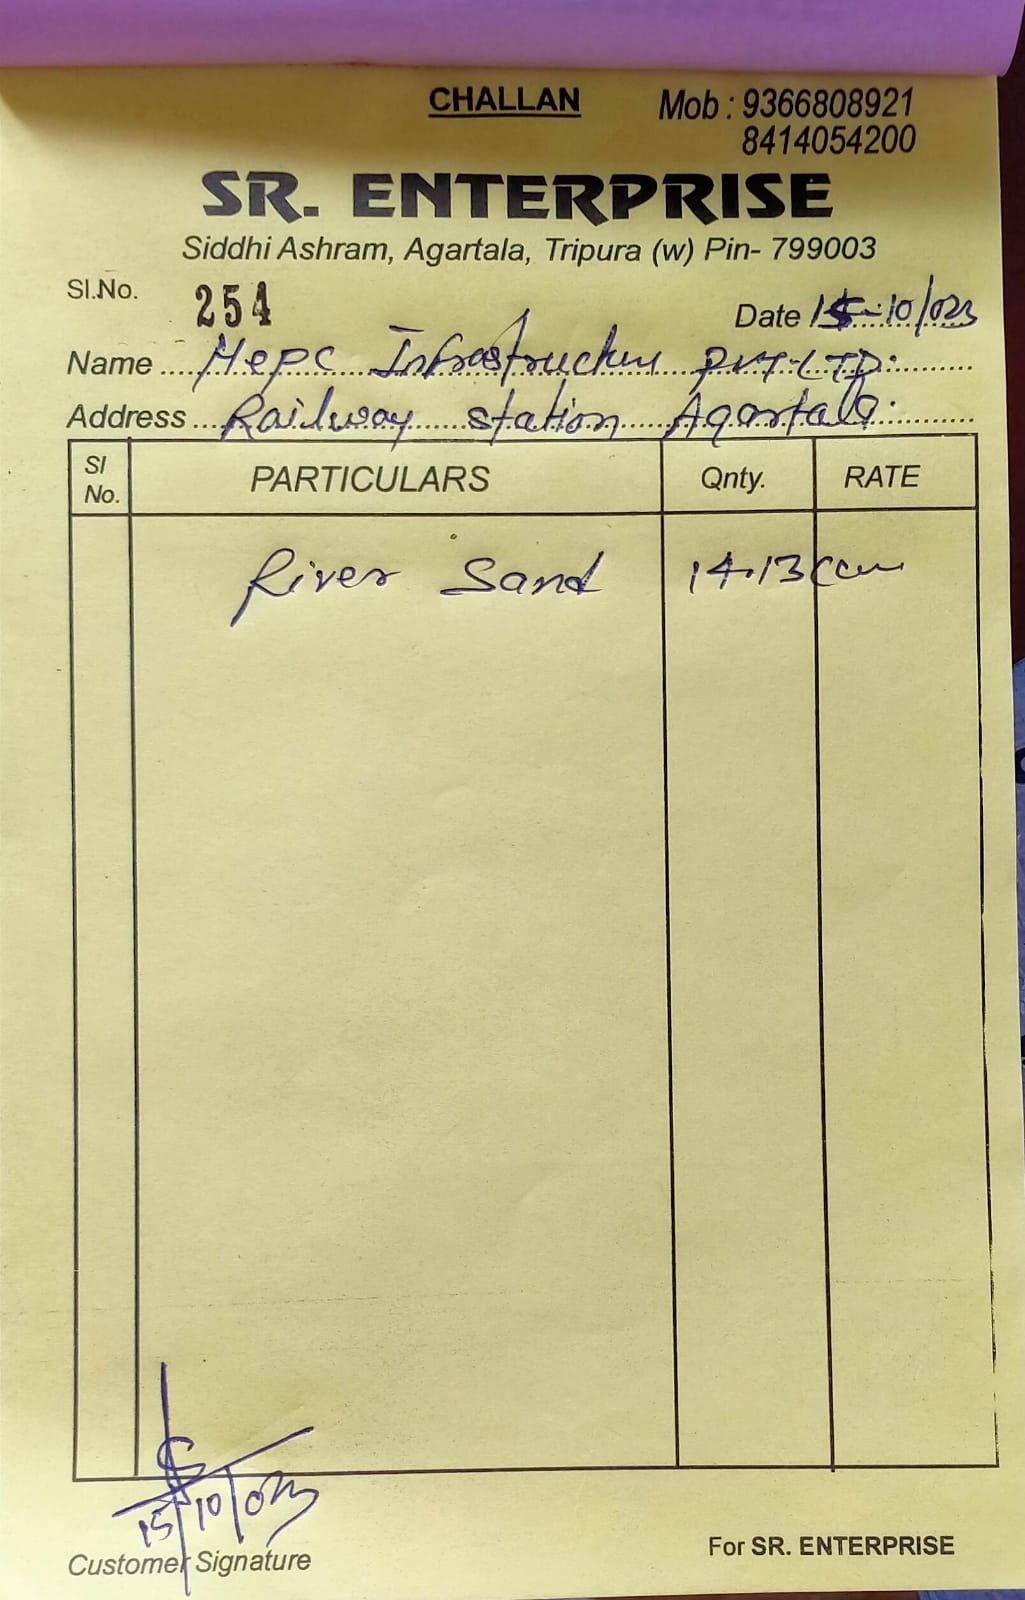 CHALLAN Mob : 9366808921
8414054200
SR. ENTERPRISE
Siddhi Ashram, Agartala, Tripura (w) Pin- 799003
Sl.No. 254
Date 15-10/023
Name Hepc Infrastructure PVT LTD.
Address Railway station Agartala.
Sl No. PARTICULARS Qnty. RATE
River Sand 14.13 cum
15/10/023
Customer Signature
For SR. ENTERPRISE